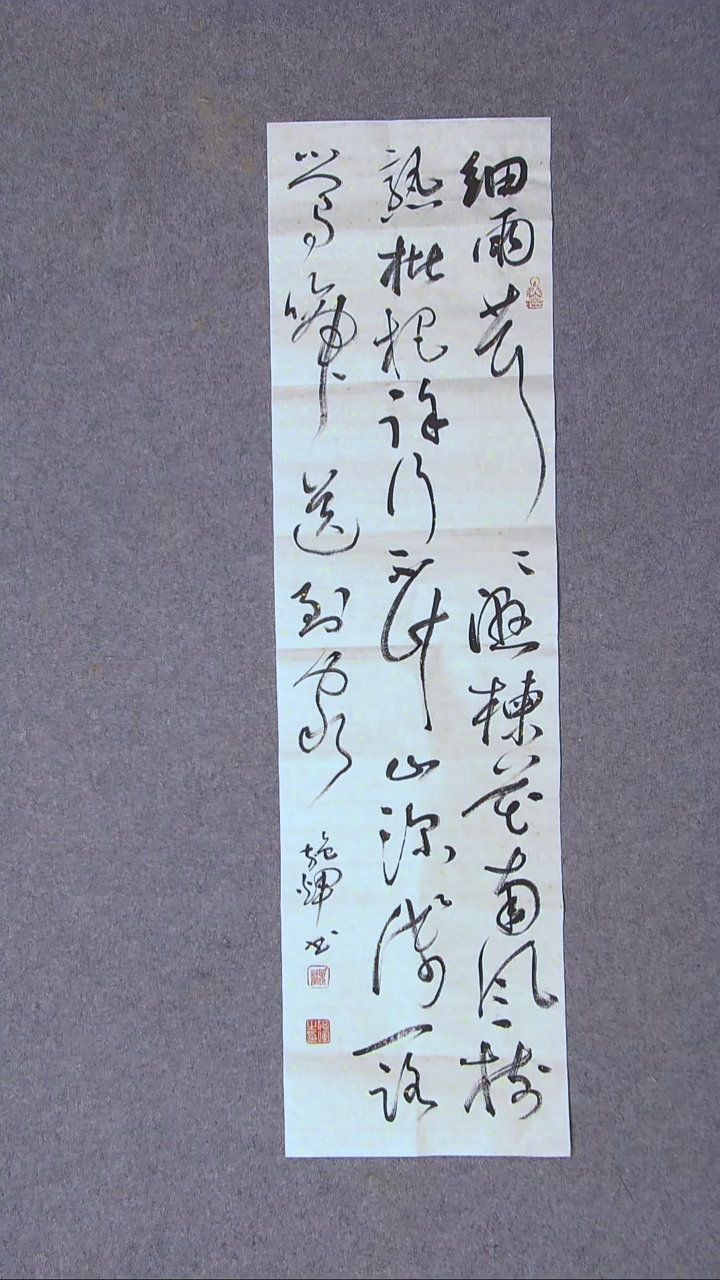 細雨茸々濕楝花南風樹
熟枇杷徐行不山深淺一路
鶯啼送到家
施輝书